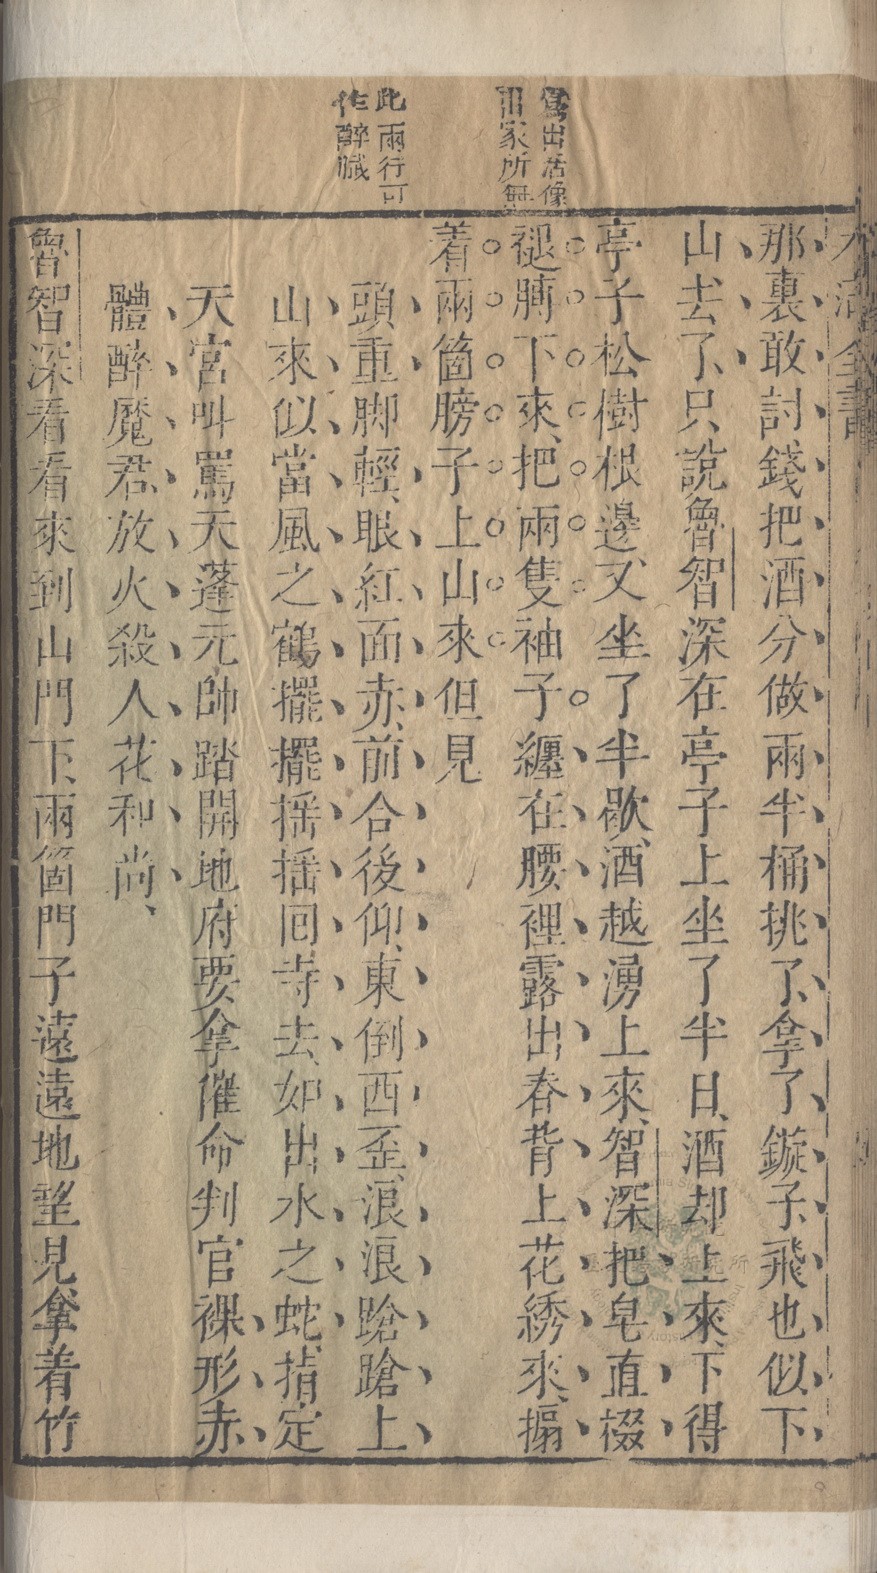 水滸全書
寫出活像
畫家所無
此兩行可
作醉贓
那裏敢討錢把酒分做兩半桶挑了、拿了鏇子、飛也似下
山去了、只說魯智深在亭子上坐了半日、酒却上來、下得
亭子松樹根邊、又坐了半歇、酒越湧上來、智深把皂直裰
褪膊下來、把兩隻袖子纏在腰裡露出脊背上花綉來、搧
着兩箇膀子上山來但見
頭重脚輕、眼紅面赤、前合後仰、東倒西歪、浪浪蹌蹌上
山來似當風之鶴、擺擺揺揺回寺去、如出水之蛇、指定
天宮叫罵天蓬元帥踏開地府要拿催命判官裸形赤
體醉魔君、放火殺人花和尚、
魯智深看看來到山門下、兩箇門子遠遠地望見拿着竹